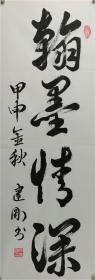 翰墨情深
甲申金秋
建刚书